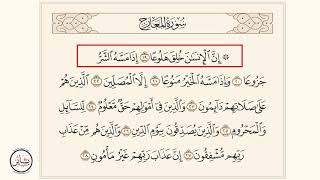 سُورَةُ المَعَارِجِ
۞ إِنَّ ٱلْإِنسَٰنَ خُلِقَ هَلُوعًا ۝١٩ إِذَا مَسَّهُ ٱلشَّرُّ
جَزُوعًا ۝٢٠ وَإِذَا مَسَّهُ ٱلْخَيْرُ مَنُوعًا ۝٢١ إِلَّا ٱلْمُصَلِّينَ ۝٢٢ ٱلَّذِينَ هُمْ
عَلَىٰ صَلَاتِهِمْ دَآئِمُونَ ۝٢٣ وَٱلَّذِينَ فِىٓ أَمْوَٰلِهِمْ حَقٌّ مَّعْلُومٌ ۝٢٤ لِّلسَّآئِلِ
وَٱلْمَحْرُومِ ۝٢٥ وَٱلَّذِينَ يُصَدِّقُونَ بِيَوْمِ ٱلدِّينِ ۝٢٦ وَٱلَّذِينَ هُم مِّنْ عَذَابِ
رَبِّهِم مُّشْفِقُونَ ۝٢٧ إِنَّ عَذَابَ رَبِّهِمْ غَيْرُ مَأْمُونٍ ۝٢٨